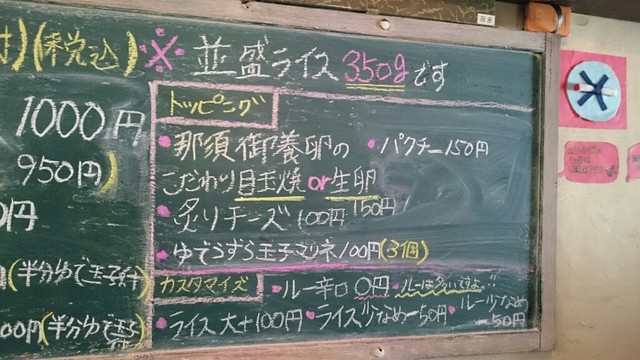 (税込)
※並盛ライス350gです
1000円
950円)
0円
(半分ゆで玉子付)
00円(半分ゆで玉子
トッピング
・那須御養卵の
こだわり目玉焼or生卵
150円
・パクチー150円
・炙りチーズ100円
・ゆでうずら玉子マリネ100円(3個)
カスタマイズ
・ルー辛口0円 ・ルーは多いですよ!!
・ライス大+100円 ・ライス少なめ-50円 ・ルー少なめ
-50円